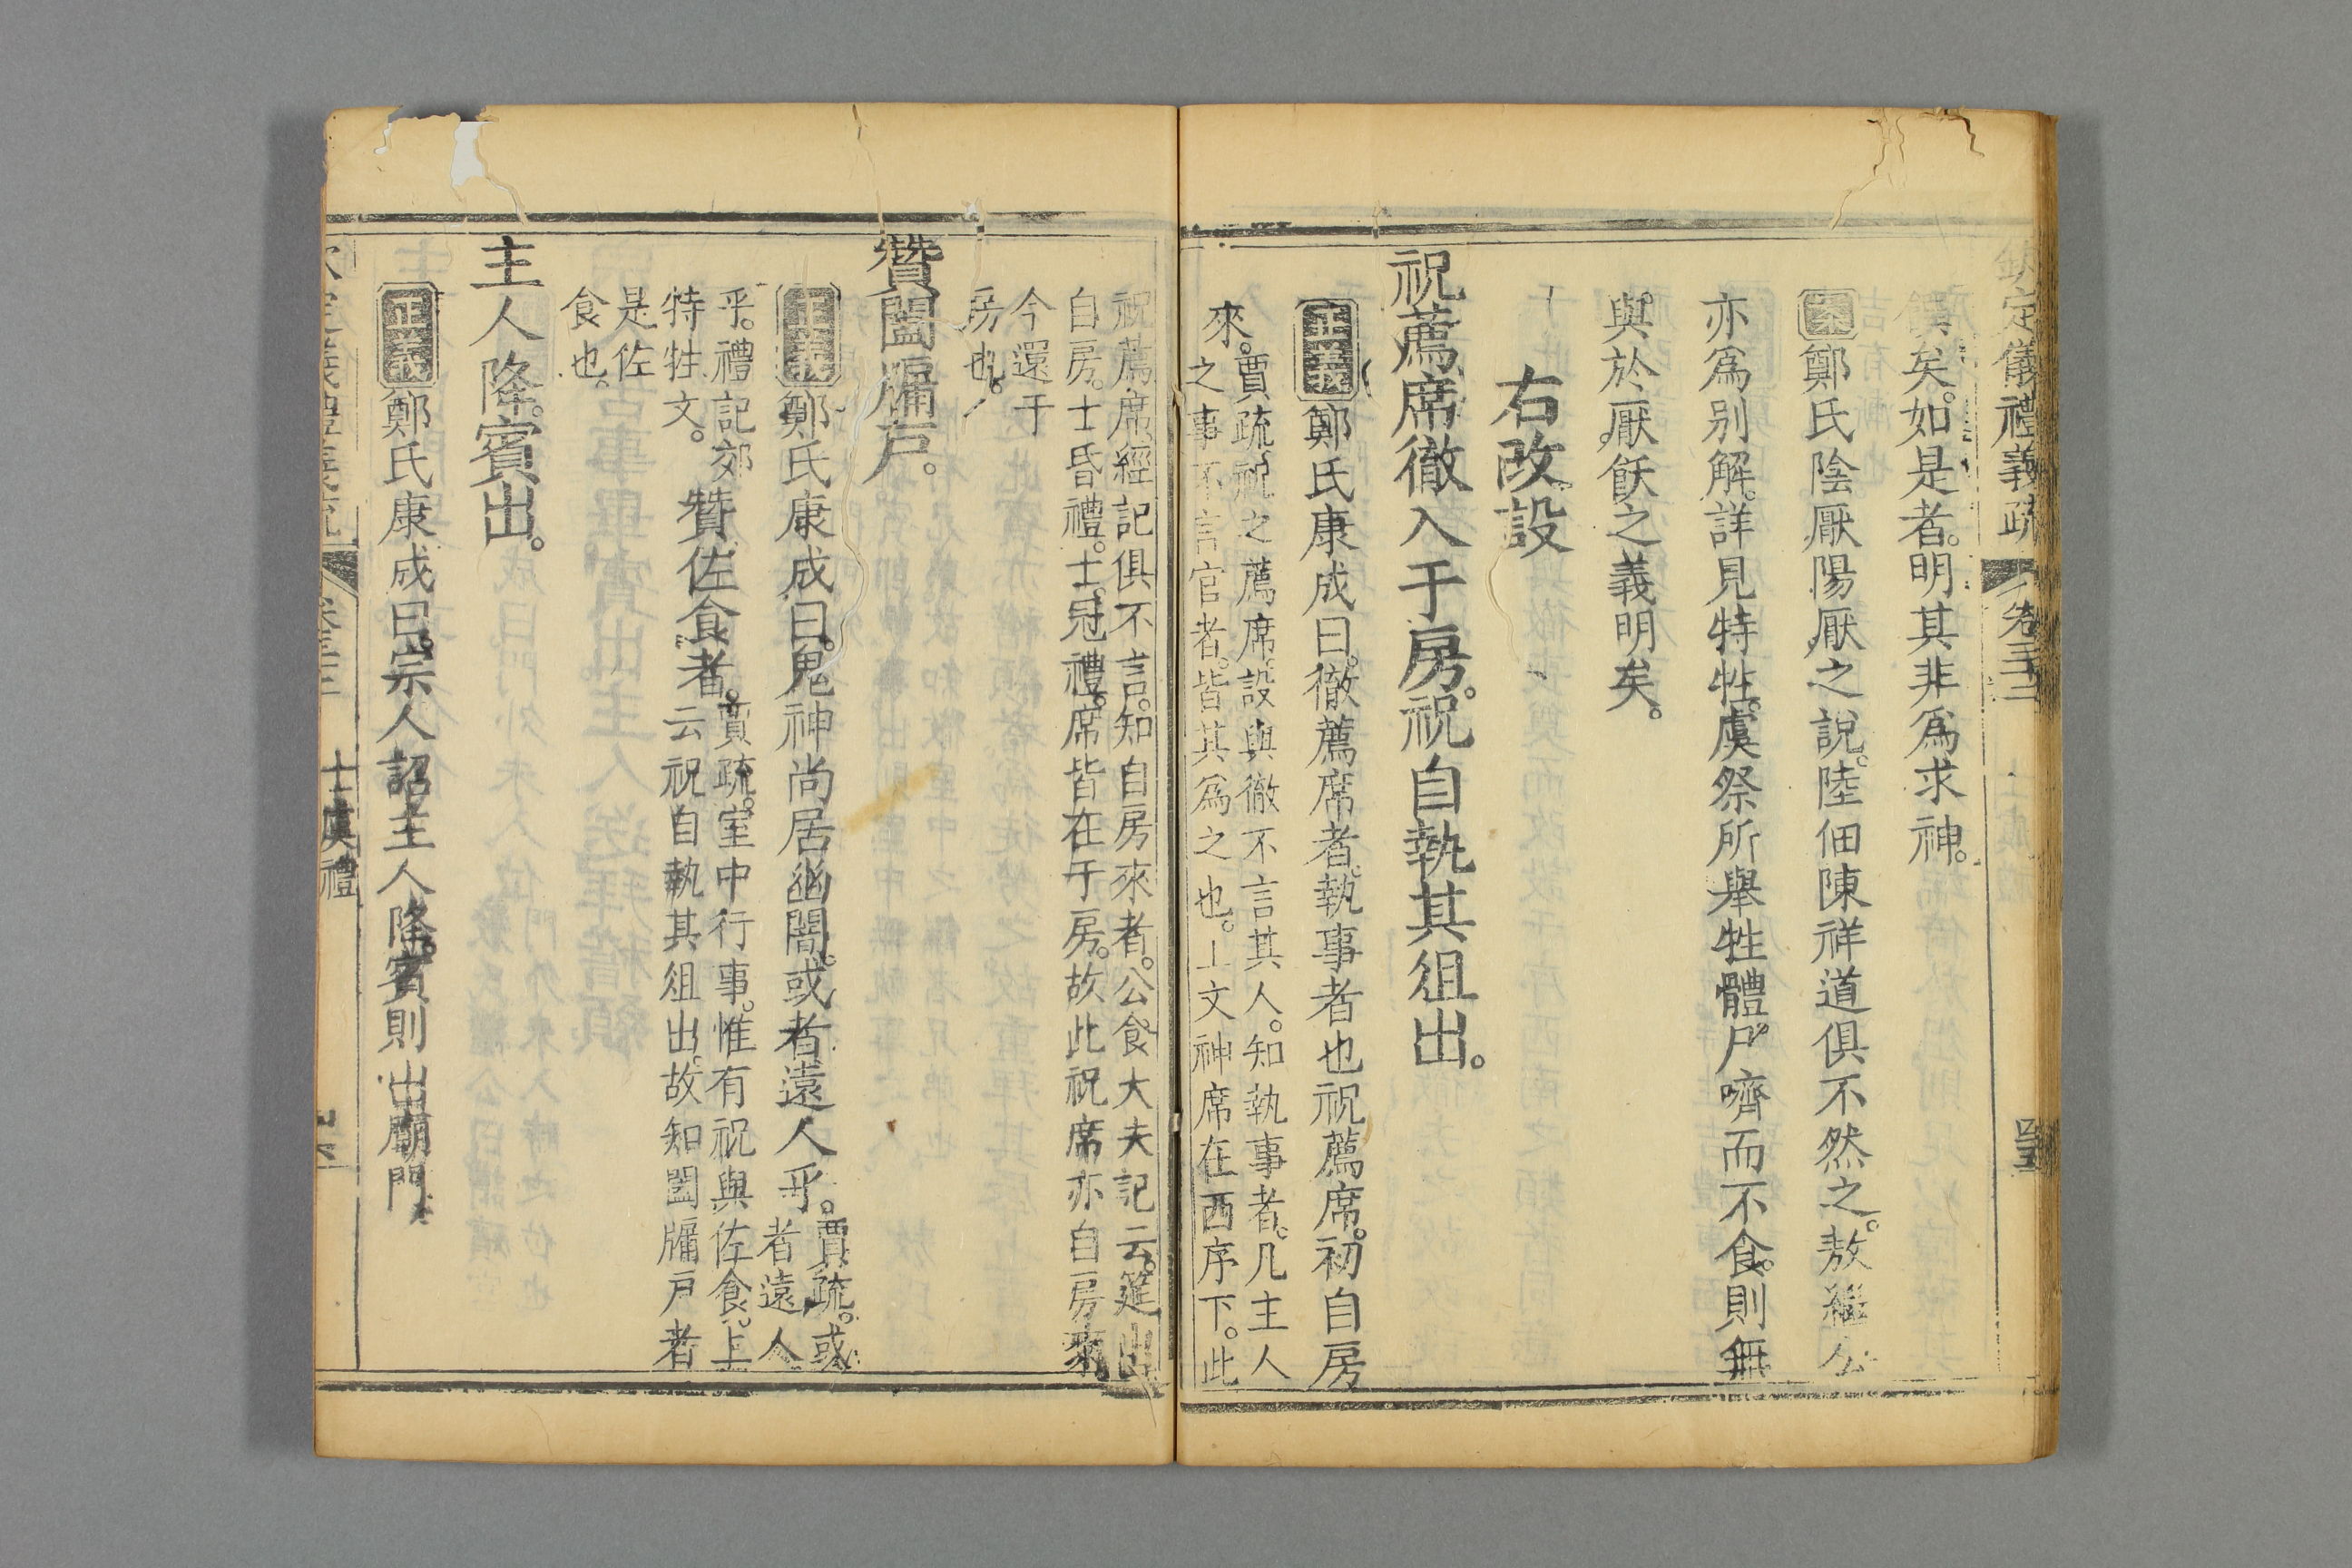 欽定儀禮義疏 卷三十二
矣。如是者。明其非爲求神。
案鄭氏陰厭陽厭之說。陸佃陳祥道俱不然之。敖繼公
亦爲别解。詳見特牲。虞祭所舉牲體。尸嚌而不食。則無
與於厭飫之義明矣。
右改設
祝薦席徹入于房。祝自執其俎出。
正義鄭氏康成曰。徹薦席者。執事者也祝薦席。初自房
來。賈疏祝之薦席。設與徹不言其人。知執事者。凡主人
之事不言官者。皆其爲之也。上文神席在西序下。此
祝薦席經記俱不言。知自房來者。公食大夫記云。筵出
自房。士昏禮。士冠禮。席皆在于房。故此祝席亦自房來
今還于
房也。
贊闔牖戶。
正義鄭氏康成曰。鬼神尚居幽闇。或者遠人乎。賈疏。或
者遠人
乎。禮記郊
特牲文。
贊佐食者。賈疏。室中行事。惟有祝與佐食。上
云祝自執其俎出。故知闔牖戶者
是佐
食也。
主人降。賓出。
正義鄭氏康成曰。宗人詔主人降。賓則出廟門
士虞禮